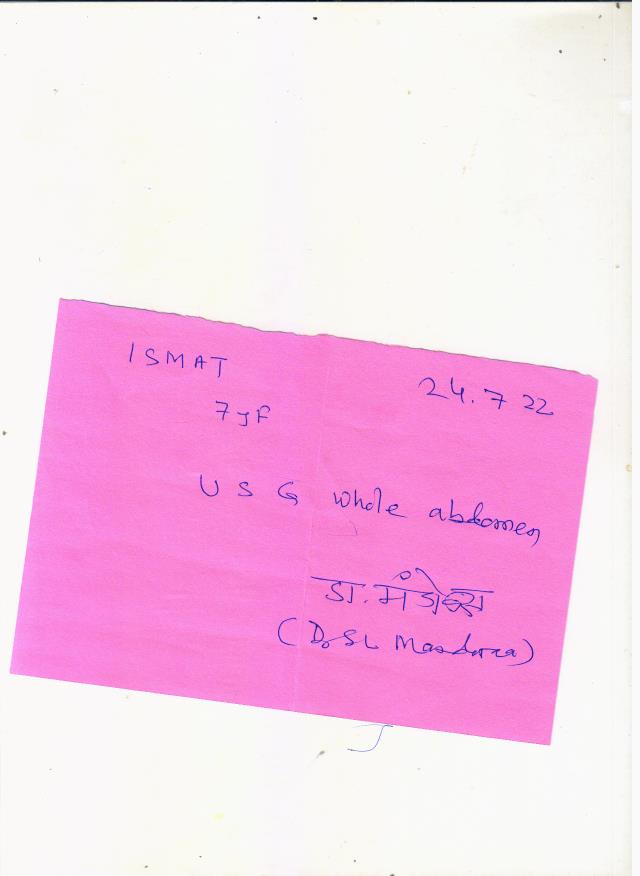 ISMAT
24.7 22
7yF
U S G whole abdomen
डा.
(Dr SL